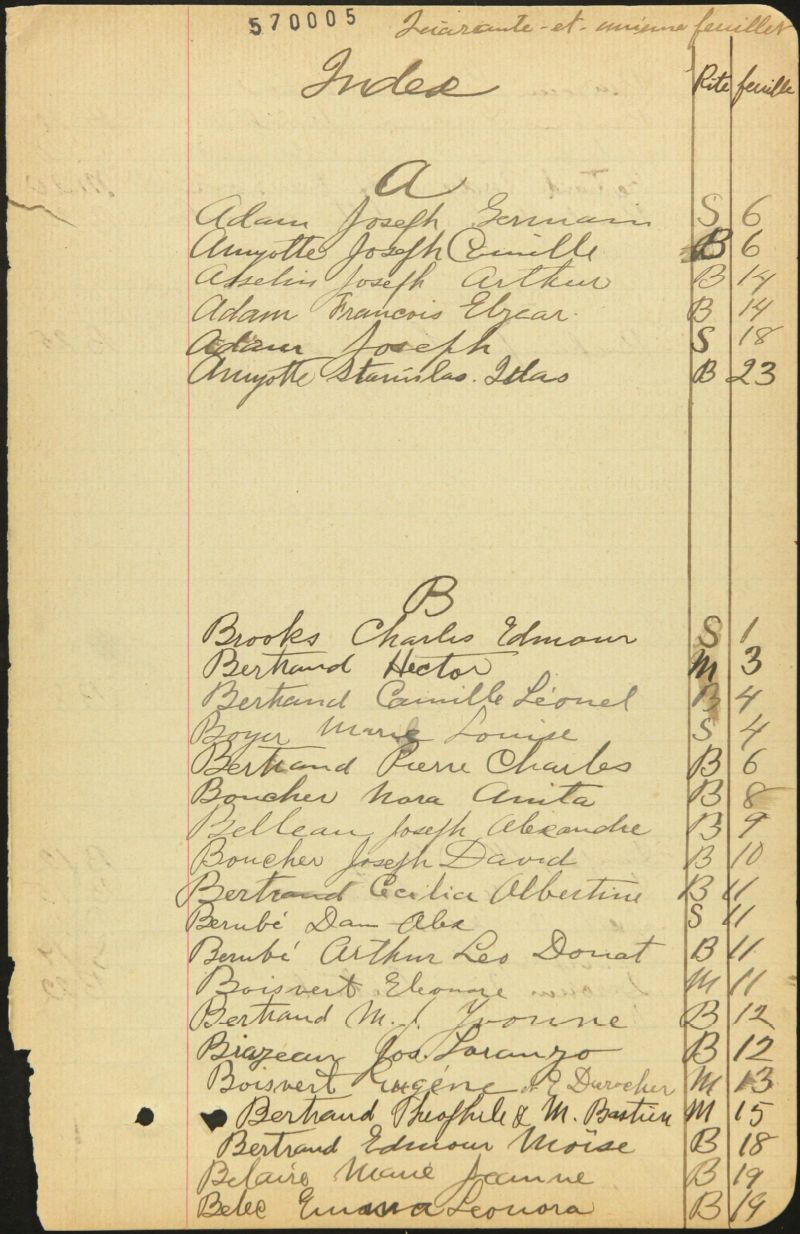 570005
Quarante-et-unième feuillet
Index
Rite feuille
A
Adam Joseph Germain S 6
Amyotte Joseph Camille B 6
Asselin Joseph Arthur B 14
Adam Francois Elzear B 14
Adam Joseph S 18
Amyotte Stanislas. Idas B 23
B
Brooks Charles Edmour S 1
Bertrand Hector M 3
Bertrand Camille Léonel B 4
Boyer Marie Louise S 4
Bertrand Pierre Charles B 6
Boucher Nora Anita B 8
Belleau Joseph Alexandre B 9
Boucher Joseph David B 10
Bertrand Cecilia Albertine B 11
Berubé Dam Alex S 11
Berubé Arthur Leo Donat B 11
Boisvert Eleonore M 11
Bertrand M. J. Yvonne B 12
Biazeau Jos. Loranzo B 12
Boisvert Eugéne et E Durocher M 13
Bertrand Theophile & M. Bastien M 15
Bertrand Edmour Moïse B 18
Belaire Marie Jeanne B 19
Belec Emma Leonora B 19